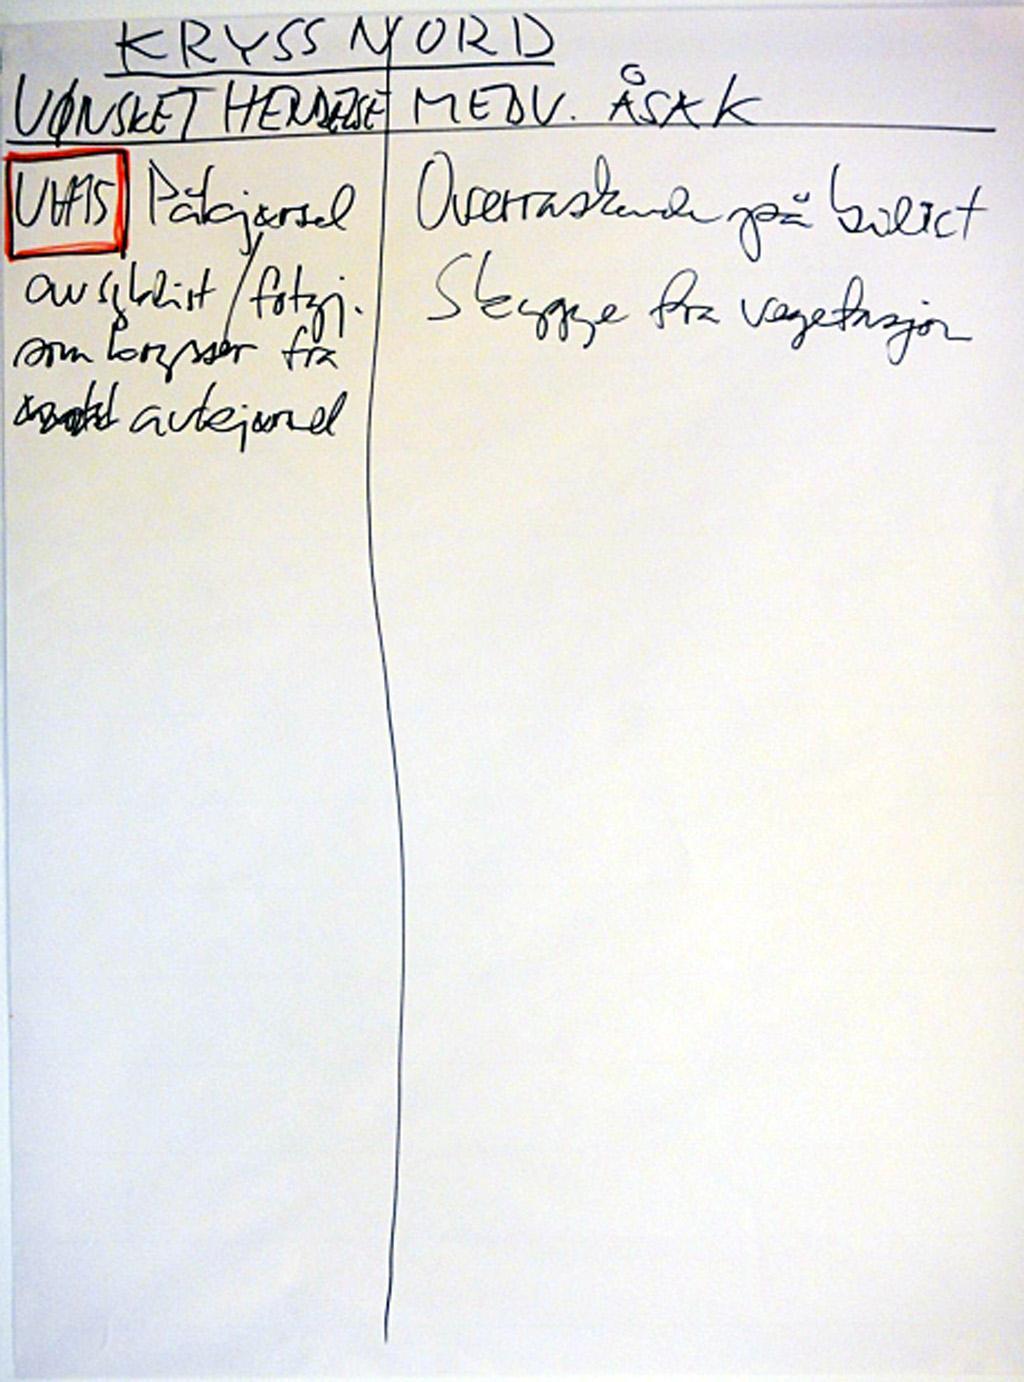 KRYSS NORD
UØNSKET HENDELSE MEDV. ÅSAK
UH15 Påkjørsel
av syklist / fotgj.
som krysser fra
avkjørsel
Overraskende på
Skygge fra vegetasjon